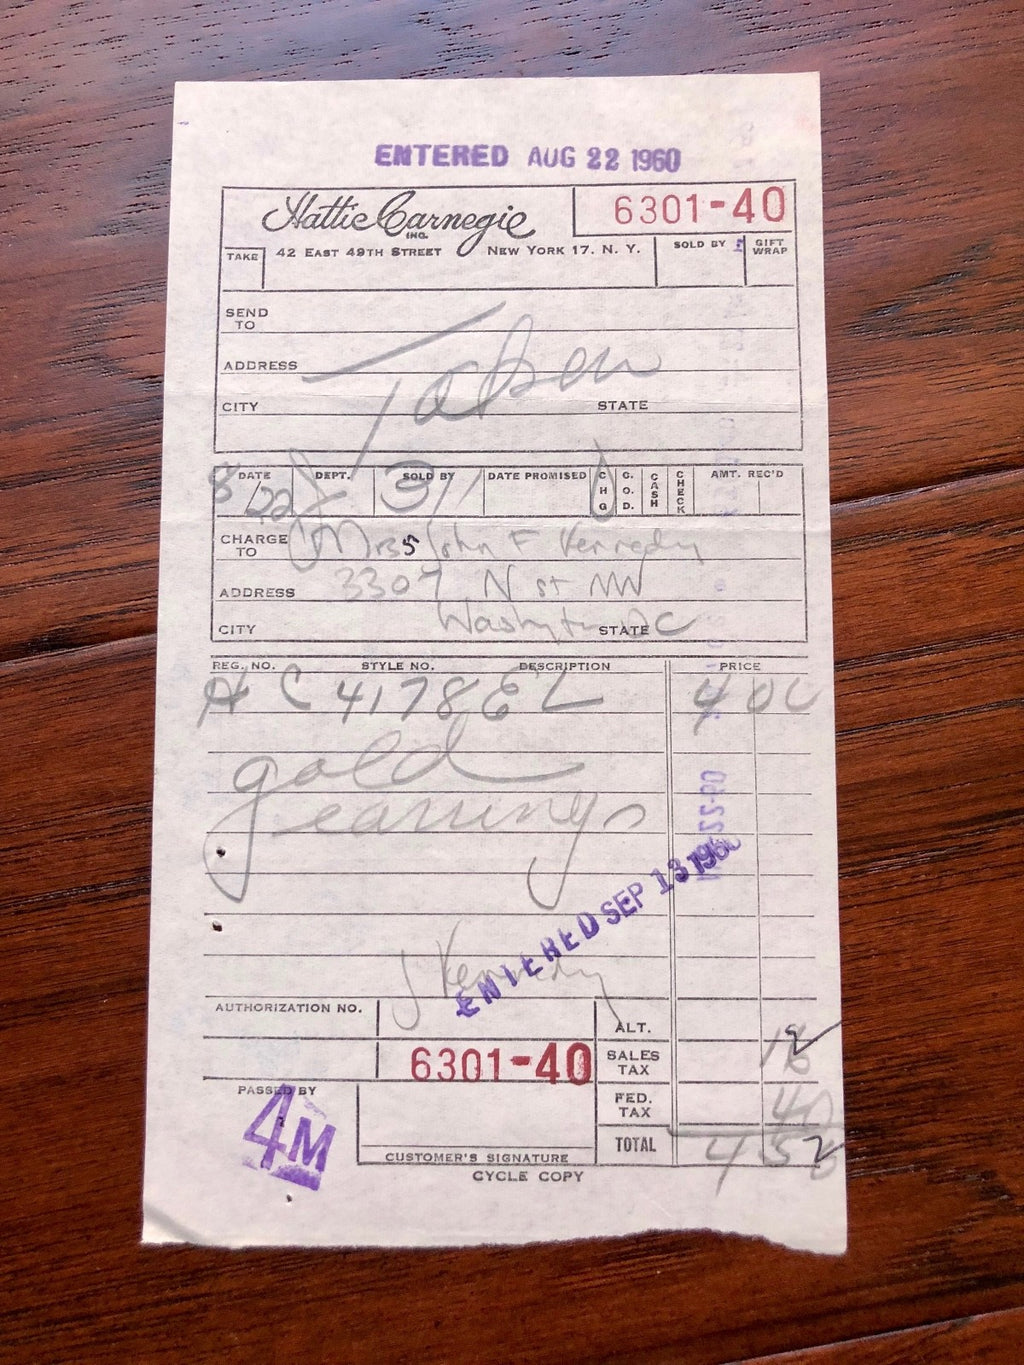 ENTERED AUG 22 1960
Hattie Carnegie
INC.
6301-40
TAKE
42 EAST 49TH STREET NEW YORK 17. N. Y.
SOLD BY
GIFT WRAP
SEND TO
ADDRESS
Taken
CITY STATE
DATE DEPT. SOLD BY DATE PROMISED CHG C.O.D. CASH CHECK AMT. REC'D
8/22 311
CHARGE TO Mrs John F Kennedy
ADDRESS 3307 N St NW
CITY Washington STATE DC
REG. NO. STYLE NO. DESCRIPTION PRICE
HC 4178 EL 400
gold
earrings
ENTERED SEP 13 1960
J Kennedy
AUTHORIZATION NO.
ALT.
6301-40
SALES TAX 12
PASSED BY
4M
FED. TAX 40
TOTAL 452
CUSTOMER'S SIGNATURE
CYCLE COPY